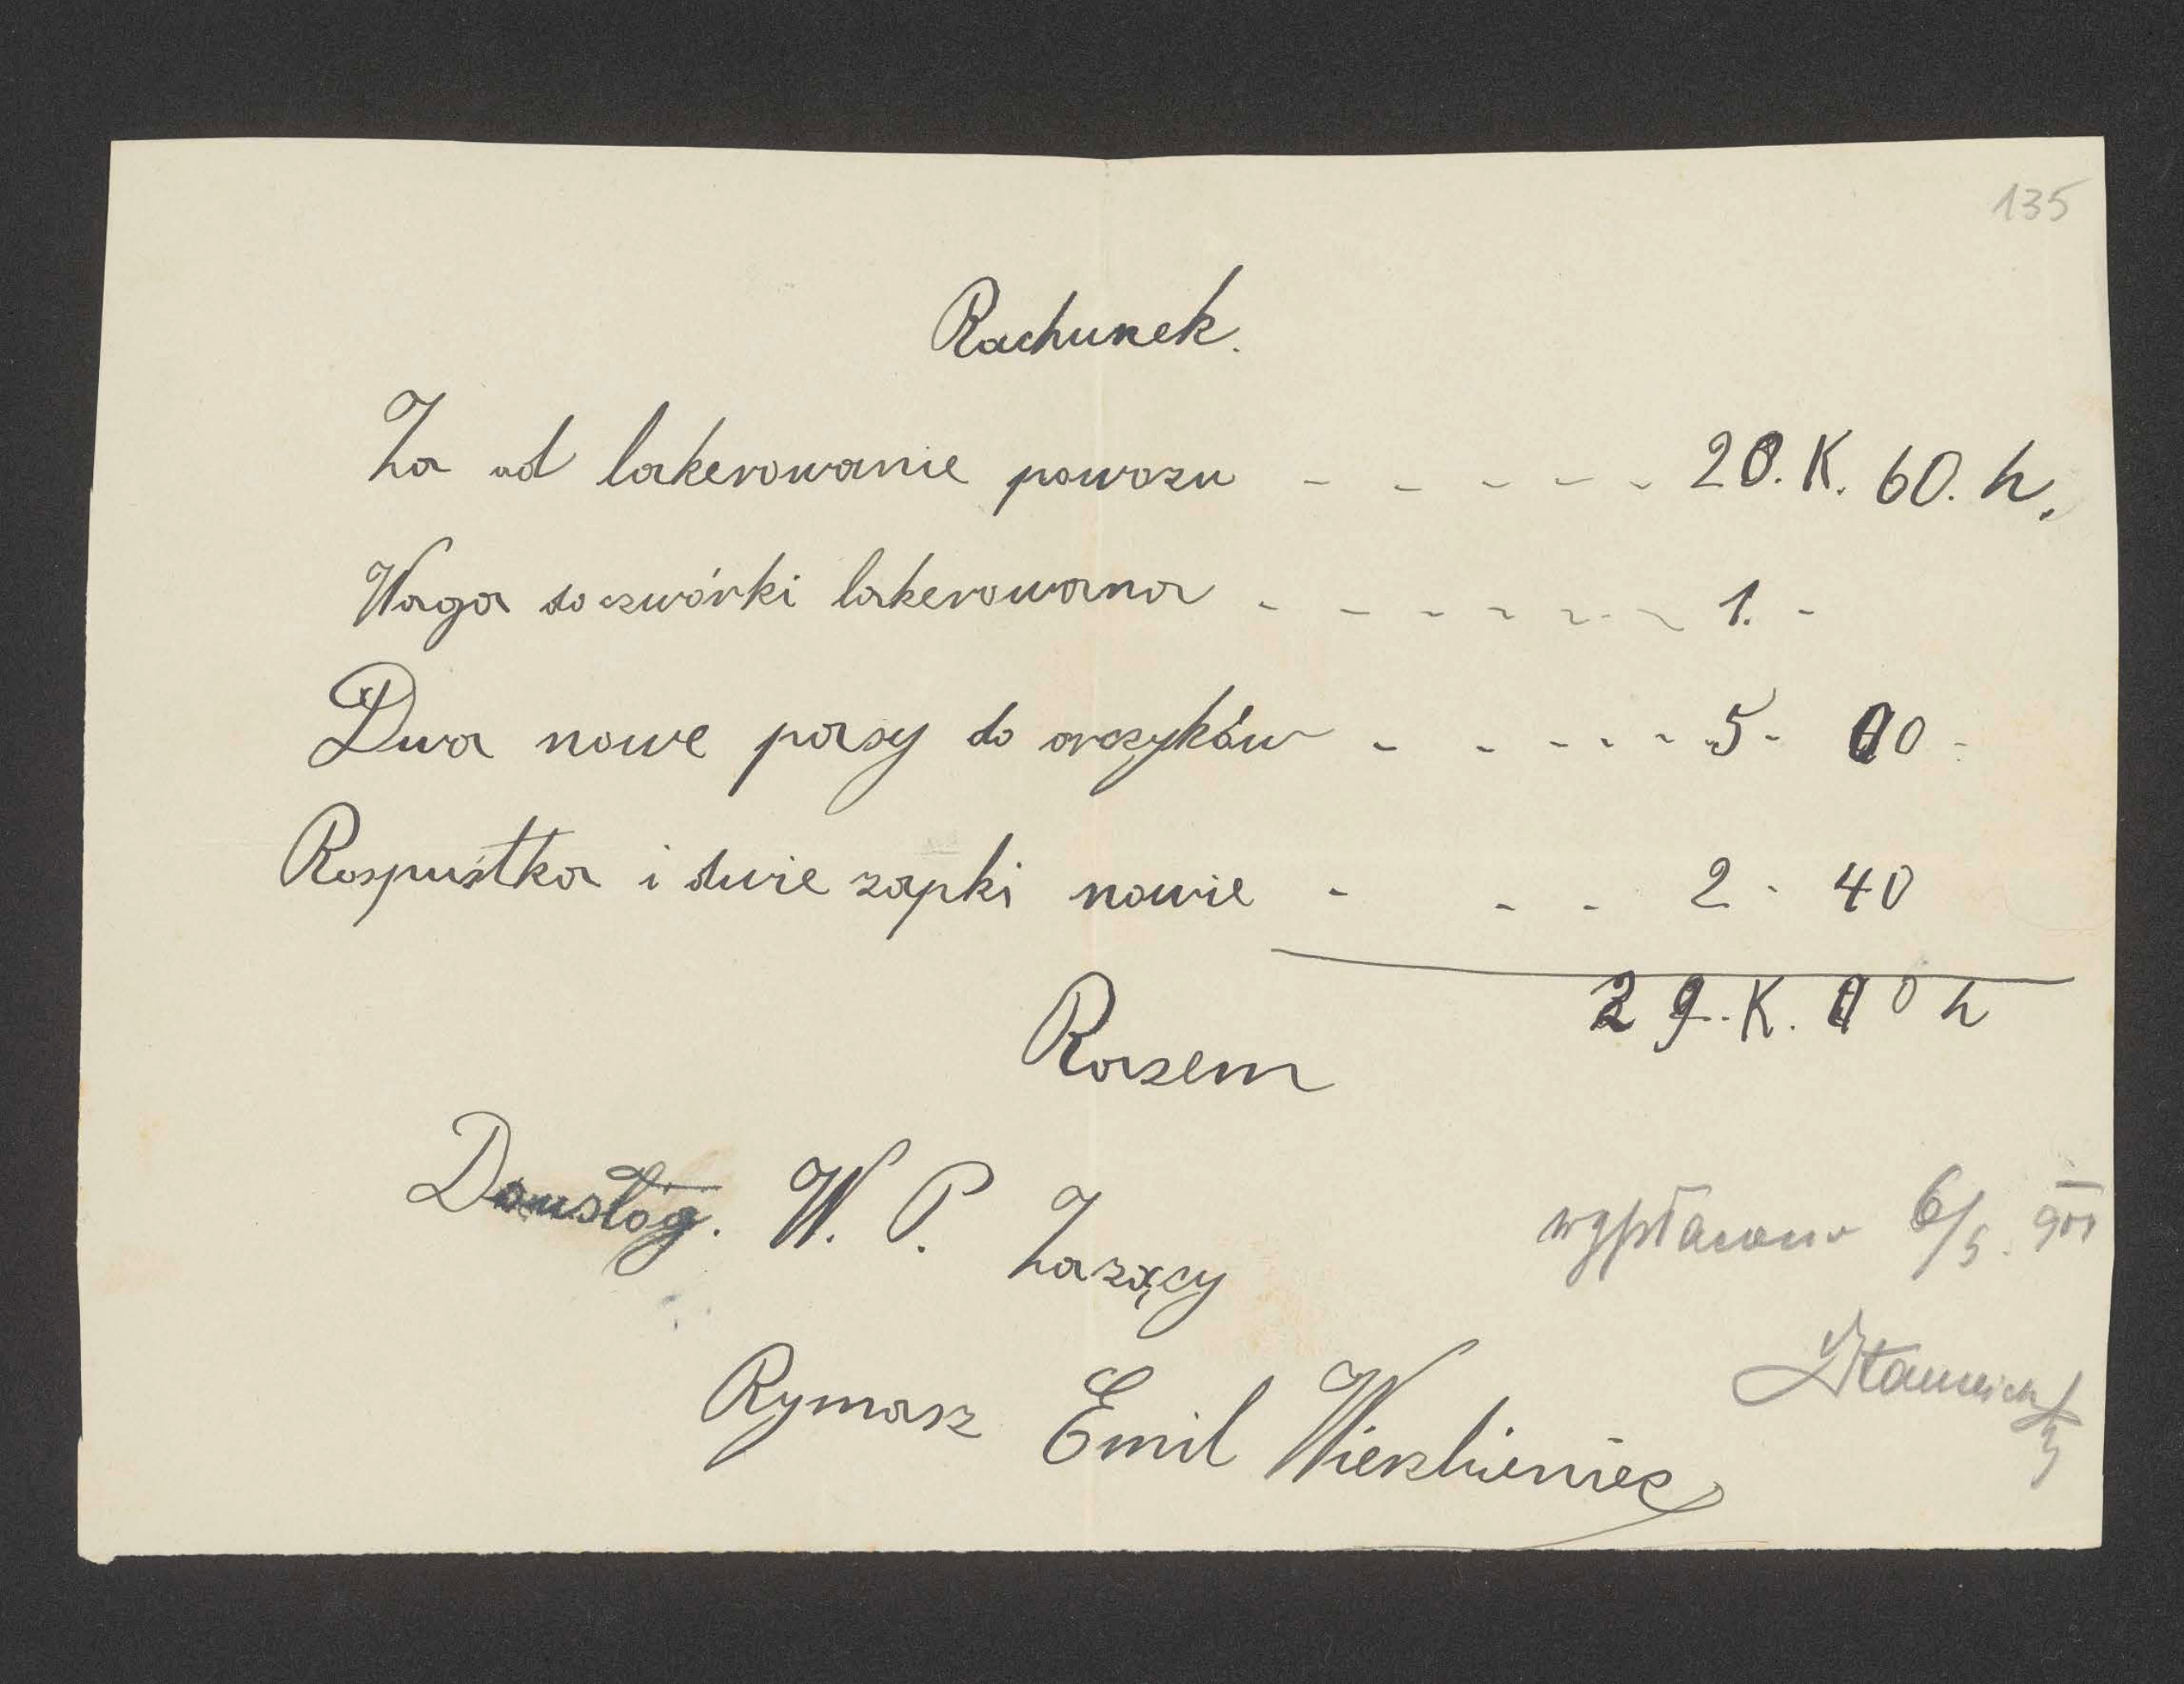 135
Rachunek.
Za od lakerowanie powozu - - - - - - 20. K. 60. h.
Waga do czwórki lakerowana - - - - - - - 1. -
Dwa nowe pasy do orczyków - - - - - - 5 - 00 -
Rospustka i dwie zapki nowie - - - 2 - 40
29. K. 00 h
Razem
W. P. Zarzący
wypłacono 6/5. 901
Rymarz Emil Wierzbieniec